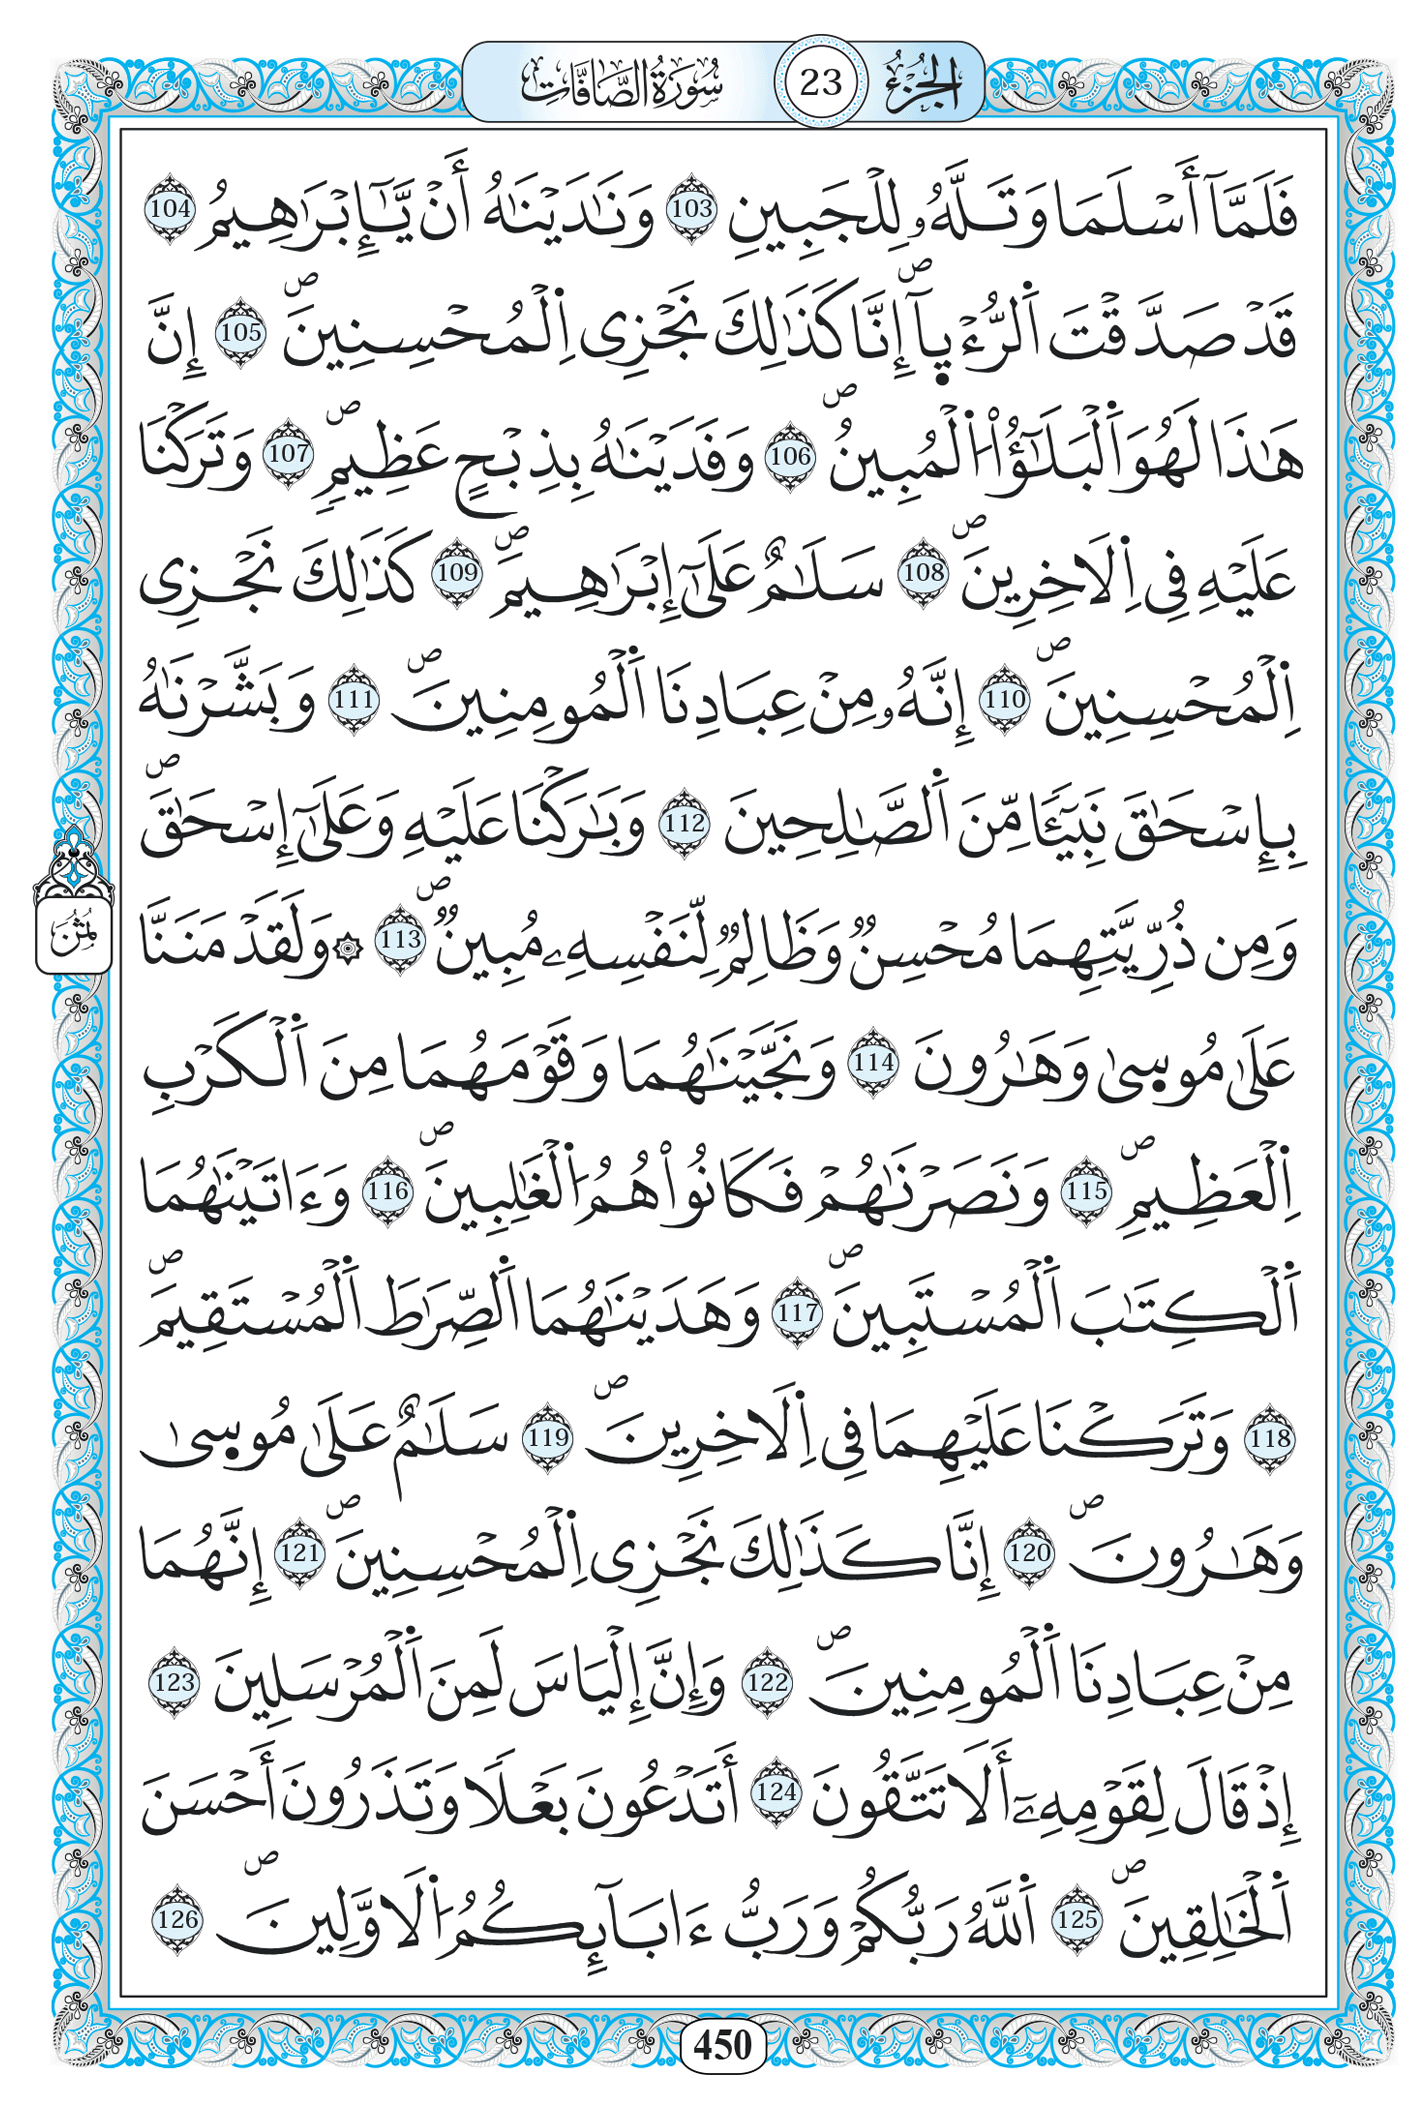 الجزء 23 سورة الصافات
فَلَمَّآ أَسْلَمَا وَتَلَّهُۥ لِلْجَبِينِ 103 وَنَٰدَيْنَٰهُ أَنْ يَّٰٓإِبْرَٰهِيمُ 104
قَدْ صَدَّقْتَ اَ۬لرُّءْي۪آۖ إِنَّا كَذَٰلِكَ نَجْزِى اِ۬لْمُحْسِنِينَۖ 105 إِنَّ
هَٰذَا لَهُوَ اَ۬لْبَلَٰٓؤُاْ اُ۬لْمُبِينُۖ 106 وَفَدَيْنَٰهُ بِذِبْحٍ عَظِيمٍۖ 107 وَتَرَكْنَا
عَلَيْهِ فِى اِ۬لَاخِرِينَۖ 108 سَلَٰمٌ عَلَىٰٓ إِبْرَٰهِيمَۖ 109 كَذَٰلِكَ نَجْزِى
اِ۬لْمُحْسِنِينَۖ 110 إِنَّهُۥ مِنْ عِبَادِنَا اَ۬لْمُومِنِينَۖ 111 وَبَشَّرْنَٰهُ
بِإِسْحَٰقَ نَبِيٓـٔاً مِّنَ اَ۬لصَّٰلِحِينَ 112 وَبَٰرَكْنَا عَلَيْهِ وَعَلَىٰٓ إِسْحَٰقَۖ
وَمِن ذُرِّيَّتِهِمَا مُحْسِنٌ وَظَالِمٌ لِّنَفْسِهِۦ مُبِينٌۖ 113 ۞ وَلَقَدْ مَنَنَّا
ثمن
عَلَىٰ مُوس۪ىٰ وَهَٰرُونَ 114 وَنَجَّيْنَٰهُمَا وَقَوْمَهُمَا مِنَ اَ۬لْكَرْبِ
اِ۬لْعَظِيمِۖ 115 وَنَصَرْنَٰهُمْ فَكَانُواْ هُمُ اُ۬لْغَٰلِبِينَۖ 116 وَءَاتَيْنَٰهُمَا
اَ۬لْكِتَٰبَ اَ۬لْمُسْتَبِينَۖ 117 وَهَدَيْنَٰهُمَا اَ۬لصِّرَٰطَ اَ۬لْمُسْتَقِيمَۖ
118 وَتَرَكْنَا عَلَيْهِمَا فِى اِ۬لَاخِرِينَۖ 119 سَلَٰمٌ عَلَىٰ مُوس۪ىٰ
وَهَٰرُونَۖ 120 إِنَّا كَذَٰلِكَ نَجْزِى اِ۬لْمُحْسِنِينَۖ 121 إِنَّهُمَا
مِنْ عِبَادِنَا اَ۬لْمُومِنِينَۖ 122 وَإِنَّ إِلْيَاسَ لَمِنَ اَ۬لْمُرْسَلِينَ 123
إِذْ قَالَ لِقَوْمِهِۦٓ أَلَا تَتَّقُونَ 124 أَتَدْعُونَ بَعْلًا وَتَذَرُونَ أَحْسَنَ
اَ۬لْخَٰلِقِينَۖ 125 اَ۬للَّهُ رَبُّكُمْ وَرَبُّ ءَابَآئِكُمُ اُ۬لَاوَّلِينَۖ 126
450